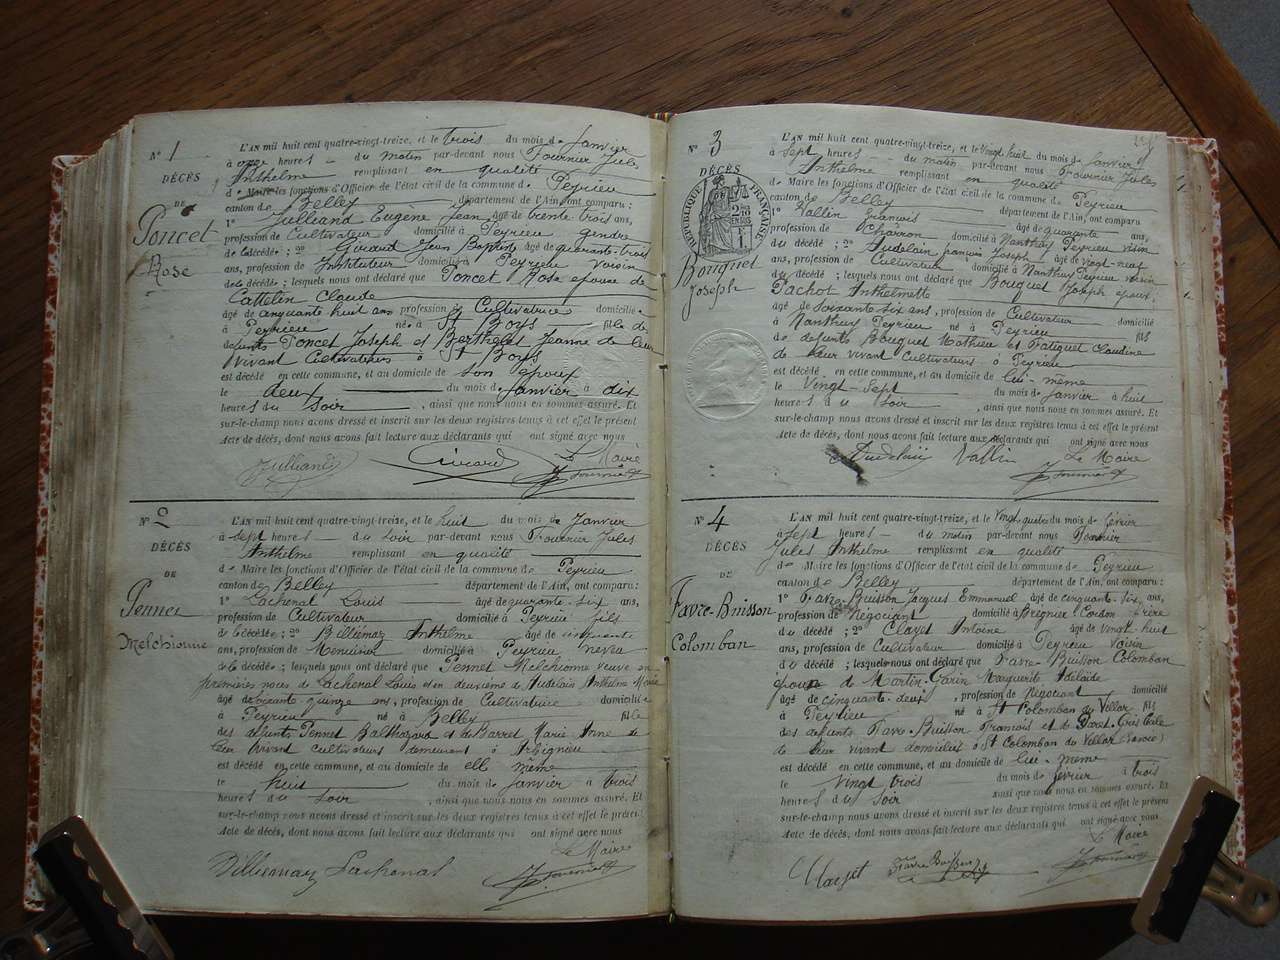 N° 1
DÉCÈS
DE
Poncet
Rose
L'AN mil huit cent quatre-vingt-treize, et le trois du mois de Janvier
à onze heures du matin par-devant nous Fournier Jules
Anthelme remplissant en qualité
de Maire les fonctions d'Officier de l'état civil de la commune de Peyrieu
canton de Belley département de l'Ain, ont comparu :
1° Julliand Eugène Jean âgé de trente trois ans,
profession de Cultivateur domicilié à Peyrieu gendre
de la décédée ; 2° Girard Jean Baptiste âgé de quarante-trois
ans, profession de Instituteur domicilié à Peyrieu voisin
de la décédée ; lesquels nous ont déclaré que Poncet Rose epouse de
Cattelin Claude
âgé de cinquante huit ans profession de Cultivatrice domiciliée
à Peyrieu née à St Boys fille de
defunts Poncet Joseph et Berthelet Jeanne de leur
vivant Cultivateurs à St Boys
est décédée en cette commune, et au domicile de son epoux
le deux du mois de Janvier à dix
heures du soir, ainsi que nous nous en sommes assuré. Et
sur-le-champ nous avons dressé et inscrit sur les deux registres tenus à cet effet le présent
Acte de décès, dont nous avons fait lecture aux déclarants qui ont signé avec nous
Le Maire
Julliand Girard J Fournier
N° 2
DÉCÈS
DE
Pennet
Melchionne
L'AN mil huit cent quatre-vingt-treize, et le huit du mois de Janvier
à sept heures du soir par-devant nous Fournier Jules
Anthelme remplissant en qualité
de Maire les fonctions d'Officier de l'état civil de la commune de Peyrieu
canton de Belley département de l'Ain, ont comparu :
1° Lachenal Louis âgé de quarante-six ans,
profession de Cultivateur domicilié à Peyrieu fils
de la décédée ; 2° Billiémaz Anthelme âgé de cinquante
ans, profession de Menuisier domicilié à Peyrieu neveu
de la décédée ; lesquels nous ont déclaré que Pennet Melchionne veuve en
premières noces de Lachenal Louis et en deuxième de Audelain Anthelme Marie
âgé de soixante quinze ans, profession de Cultivatrice domiciliée
à Peyrieu née à Belley fille
des defunts Pennet Balthazard et de Barret Marie Anne de
leur vivant cultivateurs demeurant à Arbignieu
est décédée en cette commune, et au domicile de elle même
le huit du mois de Janvier à trois
heures du soir, ainsi que nous nous en sommes assuré. Et
sur-le-champ nous avons dressé et inscrit sur les deux registres tenus à cet effet le présent
Acte de décès, dont nous avons fait lecture aux déclarants qui ont signé avec nous
Le Maire
Billiemaz Lachenal J Fournier
N° 3
DÉCÈS
RÉPUBLIQUE FRANÇAISE
Bouquet
Joseph
L'AN mil huit cent quatre-vingt-treize, et le vingt huit du mois de Janvier
à sept heures du matin par-devant nous Fournier Jules
Anthelme remplissant en qualité
de Maire les fonctions d'Officier de l'état civil de la commune de Peyrieu
canton de Belley département de l'Ain, ont comparu
1° Vallin François âgé de quarante ans,
profession de Charron domicilié à Nanthuy Peyrieu voisin
du décédé ; 2° Audelain françois Joseph âgé de vingt-neuf
ans, profession de Cultivateur domicilié à Nanthuy Peyrieu voisin
du décédé ; lesquels nous ont déclaré que Bouquet Joseph epoux
Pachot Anthelmette
âgé de soixante six ans, profession de Cultivateur domicilié
à Nanthuy Peyrieu né à Peyrieu fils
de defunts Bouquet Mathieu et Fatiguet Claudine
de leur vivant Cultivateurs à Peyrieu
est décédé en cette commune, et au domicile de lui-même
le Vingt-Sept du mois de Janvier à huit
heures du soir, ainsi que nous nous en sommes assuré. Et
sur-le-champ nous avons dressé et inscrit sur les deux registres tenus à cet effet le présent
Acte de décès, dont nous avons fait lecture aux déclarants qui ont signé avec nous
Audelain Vallin Le Maire
J Fournier
N° 4
DÉCÈS
DE
Favre-Buisson
Colomban
L'AN mil huit cent quatre-vingt-treize, et le vingt quatre du mois de février
à sept heures du matin par-devant nous Fournier
Jules Anthelme remplissant en qualité
de Maire les fonctions d'Officier de l'état civil de la commune de Peyrieu
canton de Belley département de l'Ain, ont comparu :
1° Favre-Buisson Jacques Emmanuel âgé de cinquante-six ans,
profession de Négociant domicilié à Bregnier Cordon frère
du décédé ; 2° Clayet Antoine âgé de vingt-huit
ans, profession de Cultivateur domicilié à Peyrieu voisin
du décédé ; lesquels nous ont déclaré que Favre Buisson Colomban
époux de Martin-Garin Marguerite Adelaide
âgé de cinquante-deux, profession de Négociant domicilié
à Peyrieu né à St Colomban du Villar fils
des defunts Favre-Buisson François et de
de leur vivant domiciliés à St Colomban du Villar (Savoie)
est décédé en cette commune, et au domicile de lui-meme
le vingt trois du mois de février à trois
heures du soir ainsi que nous nous en sommes assuré. Et
sur-le-champ nous avons dressé et inscrit sur les deux registres tenus à cet effet le présent
Acte de décès, dont nous avons fait lecture aux déclarants qui ont signé avec nous
Le Maire
Clayet Favre Buisson J Fournier